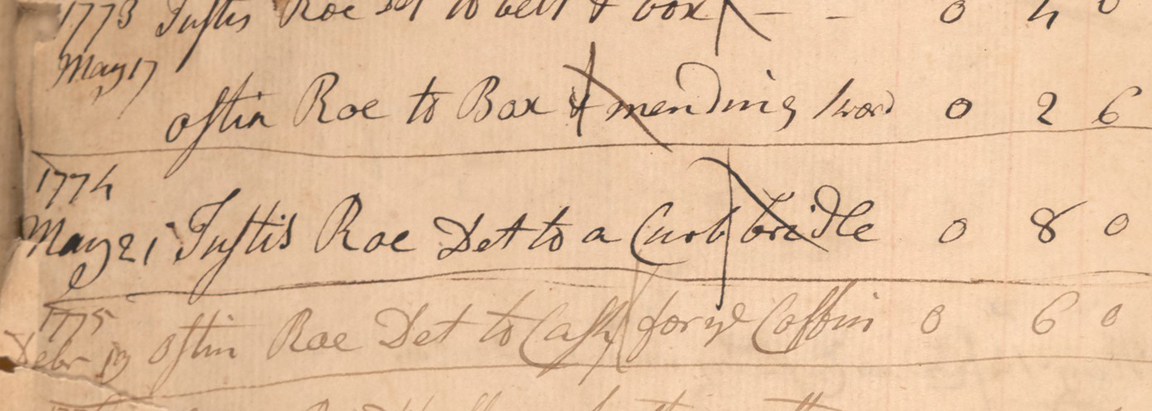 1773 Justis Roe Det to belt & box - - 0 4 0
May 17
ostin Roe to Box & mending sword 0 2 6
1774
May 21 Justis Roe Det to a Curb bridle 0 8 0
1775
Debr 19 ostin Roe Det to Cash for ye Coffin 0 6 0